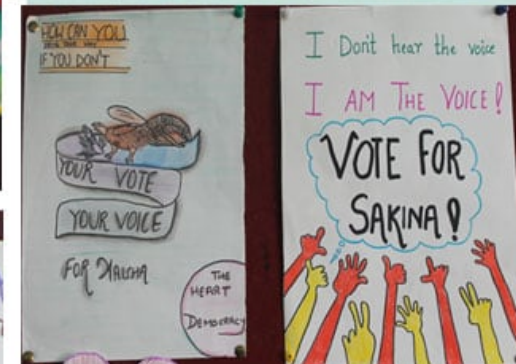 HOW CAN YOU
IF YOU DON'T
YOUR VOTE
YOUR VOICE
FOR
THE
HEART
DEMOCRACY
I Don't hear the voice
I AM THE VOICE!
VOTE FOR
SAKINA!